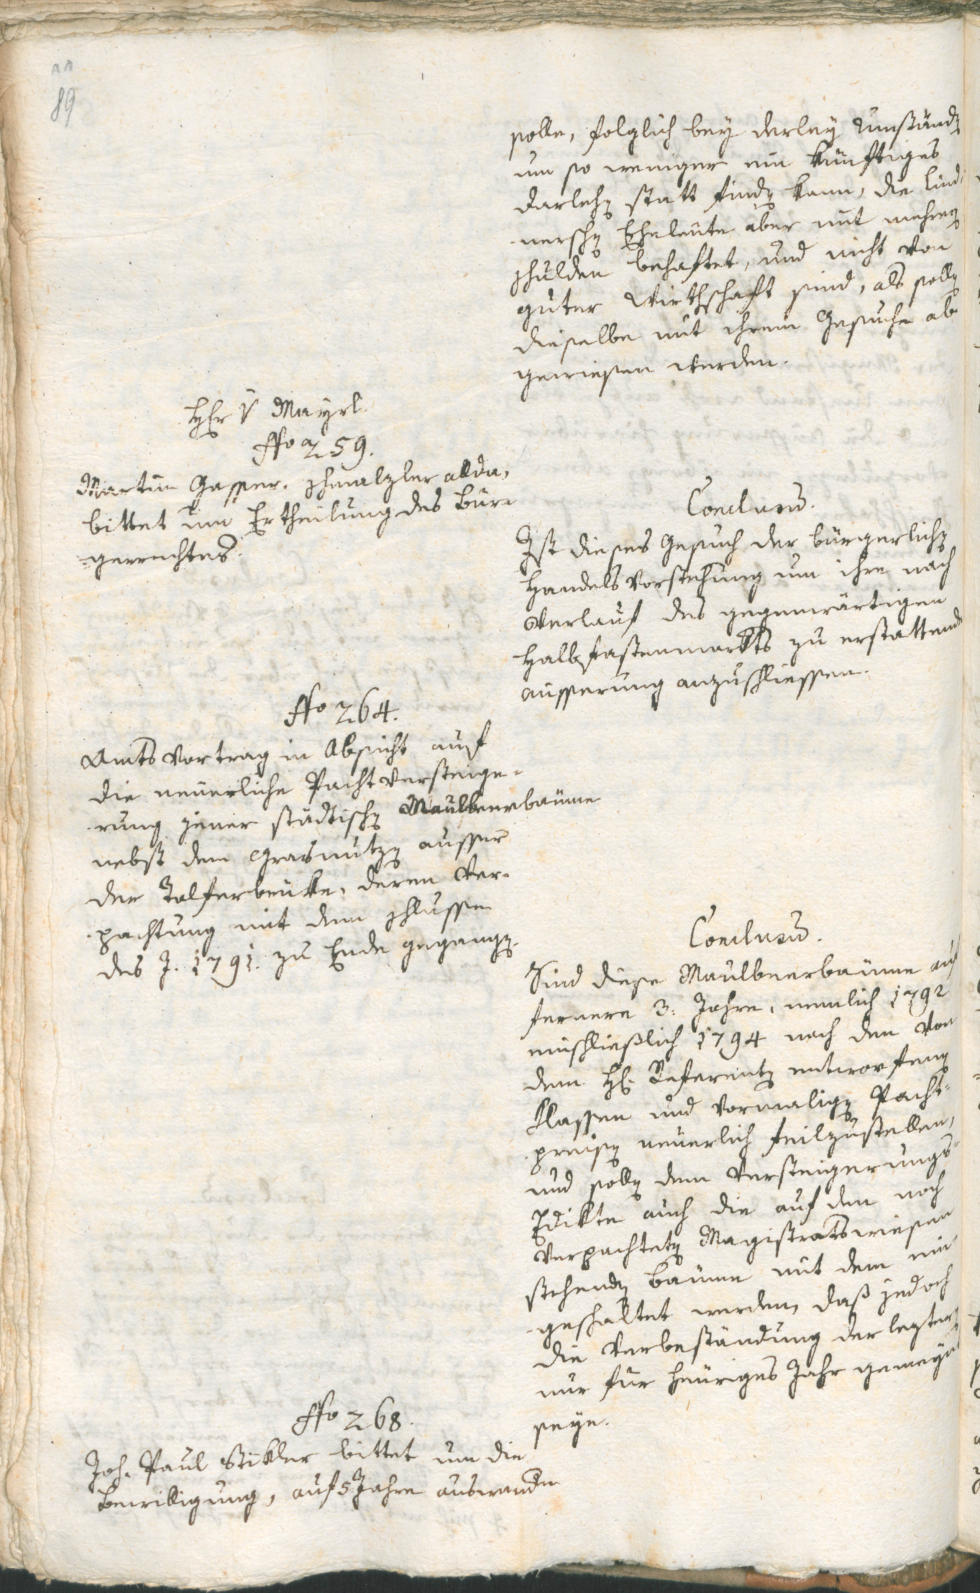 89
solle, folglich bey derley Umständ
um so weniger ein künftiges
darlehen statt finden kann, die Lind¬
nerschen Eheleute aber mit mehrern
schulden behaftet, und nicht von
guter Wirthschaft sind, als sollen
dieselbe mit ihrem Gesuche ab
gewiesen werden.
H Mayrl.
Nro 259.
Martin Gasser, schmalzler allda,
bittet um Ertheilung des Bür¬
gerrechtes.
Conclusum.
Ist dieses Gesuch der bürgerlichen
Handels Vorstehung um ihre nach
Verlauf des gegenwärtigen
Halbfastenmarkts zu erstattende
äusserung anzuschliessen.
Nro 264.
Amts Vortrag in Absicht auf
die neuerliche Pacht Versteige¬
rung jener städtischen Maulbeerbäume
nebst dem Grasnutzen ausser
der Talferbrücke, deren Ver¬
pachtung mit dem schlusse
des J. 1791. zu Ende gegangen.
Conclusum.
Sind diese Maulbeerbäume auf
fernere 3. Jahre, nemlich 1792
einschließlich 1794 nach den von
dem H. Referenten entworfenen
Klassen und vormaligen Pacht¬
preisen neuerlich feilzustellen,
und sollen dem Versteigerungs¬
Edikte auch die auf den noch
verpachteten Magistratswiesen
stehenden Bäume mit dem ein¬
geschaltet werden, daß jedoch
die Verbeständung der leztern
nur für heuriges Jahr gemeynt
seye.
Nro 268.
Joh. Paul Stikler bittet um die
Bewilligung, auf 5 Jahre auswandern